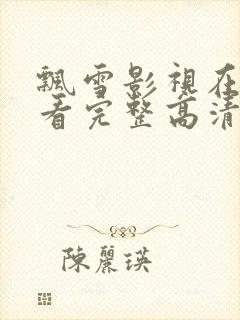 飄雪影視在
看完整高清
陳麗瑛